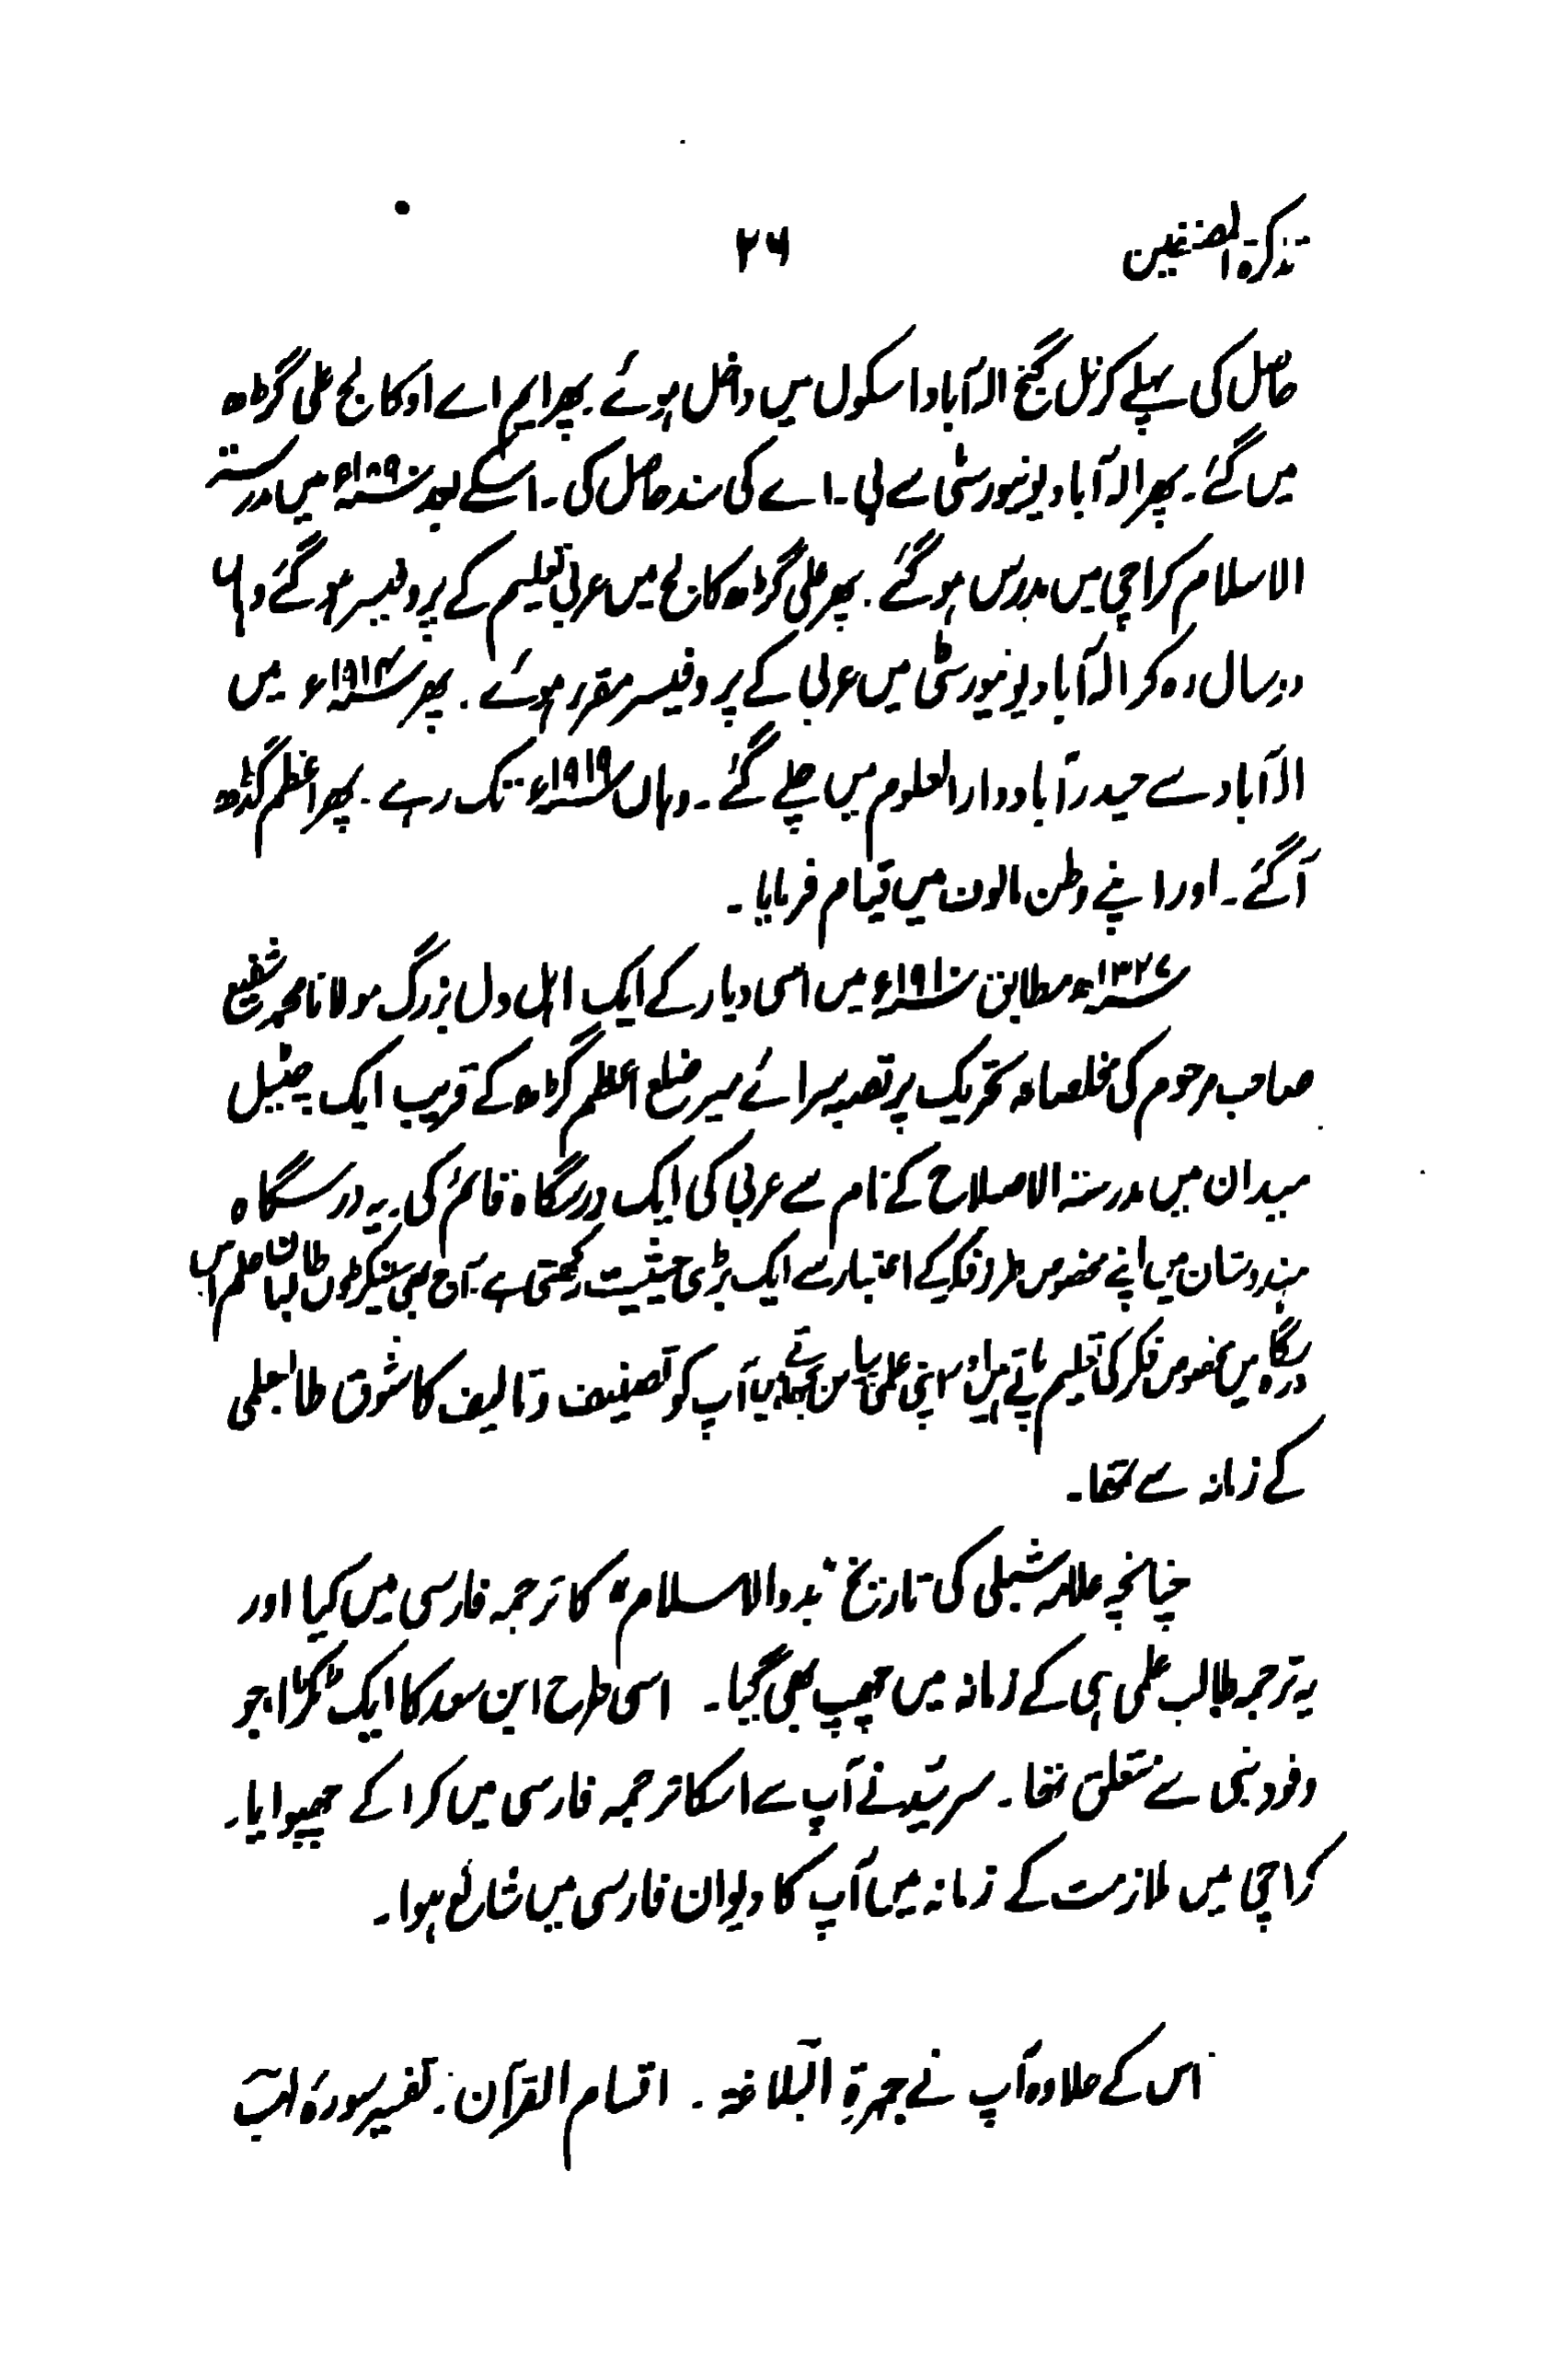 تذکرۃ المصنفین
۲۶
حاصل کی پہلے کرنل گنج الہ آباد اسکول میں داخل ہوئے۔ پھر ایم اے او کالج علی گڑھ
میں گئے۔ پھر الہ آباد یونیورسٹی سے بی۔ اے کی سند حاصل کی۔ اسکے بعد میں مدرستہ
الاسلام کراچی میں مدرس ہوگئے۔ پھر علی گڑھ کالج میں عربی تعلیم کے پروفیسر ہوگئے وہاں
دو سال رہ کر الہ آباد یونیورسٹی میں عربی کے پروفیسر مقرر ہوئے۔ پھر ۱۹۱۴ء میں
الہ آباد سے حیدرآباد دارالعلوم میں چلے گئے۔ وہاں ۱۹۱۹ء تک رہے۔ پھر اعظم گڈھ
آگئے۔ اور اپنے وطن مالوف میں قیام فرمایا۔
۱۳۲۷ھ مطابق ۱۹۱۰ء میں اسی دیار کے ایک اہل دل بزرگ مولانا محمد شفیع
صاحب مرحوم کی مخلصانہ تحریک پر قصبہ سرائے میر ضلع اعظم گڑھ کے قریب ایک چٹیل
میدان میں مدرستہ الاصلاح کے نام سے عربی کی ایک درسگاہ قائم کی۔ یہ درسگاہ
ہندوستان میں اپنے مخصوص طرز فکر کے اعتبار سے ایک بڑی حیثیت رکھتی ہے۔ آج بھی سینکڑوں طالبان علم اس
درسگاہ میں مخصوص فکر کی تعلیم پاتے ہیں اور اپنی علمی پیاس بجھاتے ہیں آپ کو تصنیف و تالیف کا شوق طالبعلمی
کے زمانہ سے تھا۔
چنانچہ علامہ شبلی کی تاریخ "بدء الاسلام" کا ترجمہ فارسی میں کیا اور
یہ ترجمہ طالب علمی ہی کے زمانہ میں چھپ بھی گیا۔ اسی طرح ابن سعد کا ایک ٹکڑا، جو
وفود نبی سے متعلق تھا۔ سرسید نے آپ سے اسکا ترجمہ فارسی میں کرا کے چھپوایا۔
کراچی میں ملازمت کے زمانہ میں آپ کا دیوان فارسی میں شائع ہوا۔
اس کے علاوہ آپ نے جمہرۃ البلاغۃ۔ اقسام القرآن۔ تفسیر سورۂ لہب